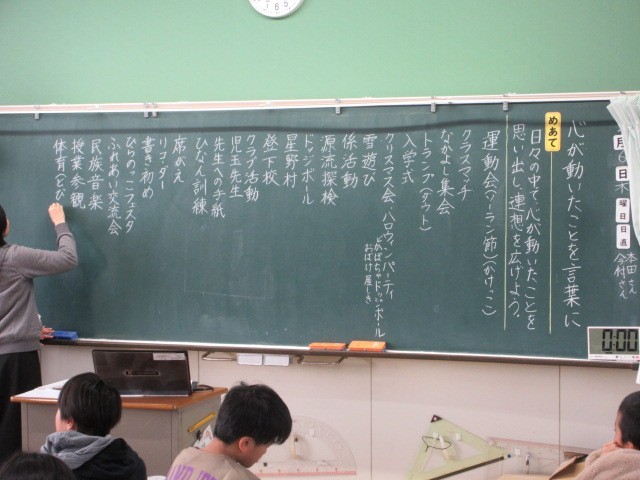 月
日
木
曜日
日直
本田さん
今村さん
心が動いたことを言葉に
めあて
日々の中で、心が動いたことを
思い出し、連想を広げよう。
運動会(ソーラン節)(かけっこ)
クラスマッチ
なかよし集会
トランプ(タワー)
入学式
クリスマス会、ハロウィンパーティ
おばけ屋しき
雪遊び
係活動
源流探検
ドッジボール
星野村
昼下校
クラブ活動
児玉先生
先生への手紙
ひなん訓練
席がえ
リコーダー
書き初め
ひのっこフェスタ
ふれあい交流会
民族音楽
授業参観
体育(とび
0:00